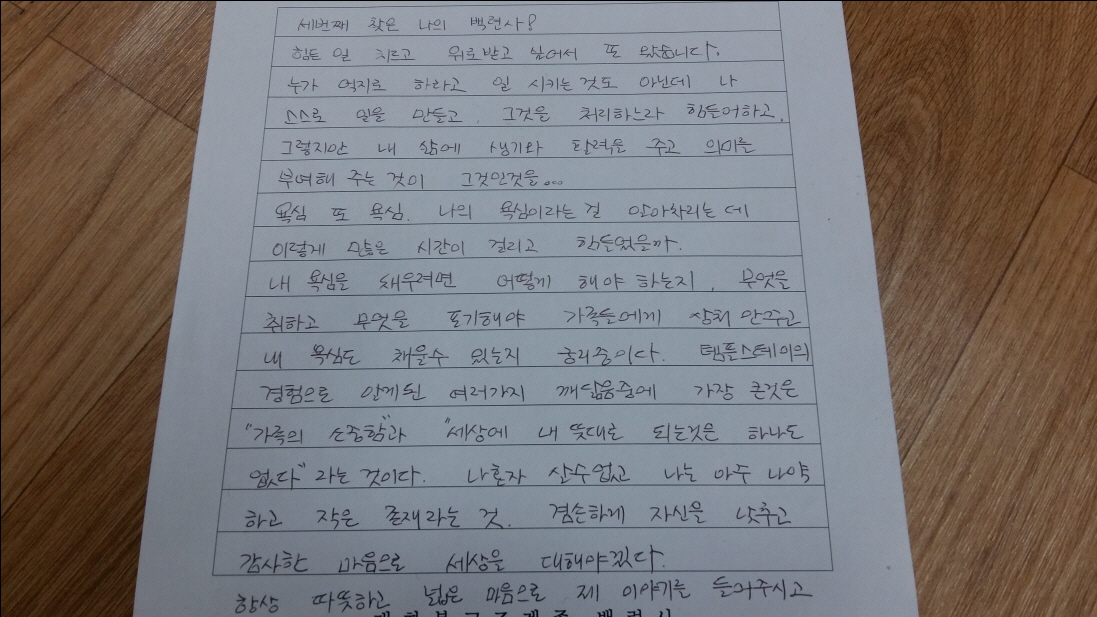 세번째 찾은 나의 백련사!
힘든 일 치르고 위로받고 싶어서 또 왔습니다.
누가 억지로 하라고 일 시키는 것도 아닌데 나
스스로 일을 만들고, 그것을 처리하느라 힘들어하고,
그렇지만 내 삶에 생기와 탄력을 주고 의미를
부여해 주는 것이 그것인것을...
욕심 또 욕심. 나의 욕심이라는 걸 알아차리는 데
이렇게 많은 시간이 걸리고 힘들었을까.
내 욕심을 채우려면 어떻게 해야 하는지, 무엇을
취하고 무엇을 포기해야 가족들에게 상처 안주고
내 욕심도 채울수 있는지 궁리중이다. 템플스테이의
경험으로 알게된 여러가지 깨닮음중에 가장 큰것은
"가족의 소중함"과 "세상에 내 뜻대로 되는것은 하나도
없다" 라는 것이다. 나혼자 살수없고 나는 아주 나약
하고 작은 존재라는 것. 겸손하게 자신을 낮추고
감사한 마음으로 세상을 대해야겠다.
항상 따뜻하고 넓은 마음으로 제 이야기를 들어주시고
대한불교조계종 백련사